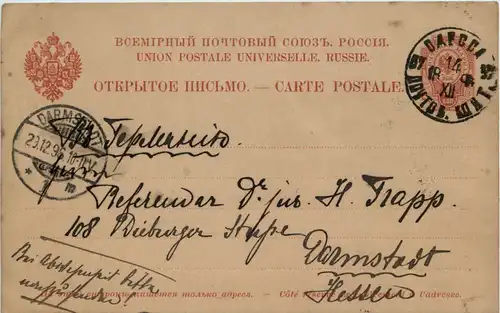 ВСЕМІРНЫЙ ПОЧТОВЫЙ СОЮЗЪ. РОССІЯ.
UNION POSTALE UNIVERSELLE. RUSSIE.
ОТКРЫТОЕ ПИСЬМО. — CARTE POSTALE.
ОДЕССА
14
XII
DARMSTADT
29.12.9
Германія
Herrn
Referendar Dr. jur. H. Trapp.
108 Dieburger Straße
Darmstadt
Hessen
Bei
bitte
только адреса. — Côté réservé
l'adresse.